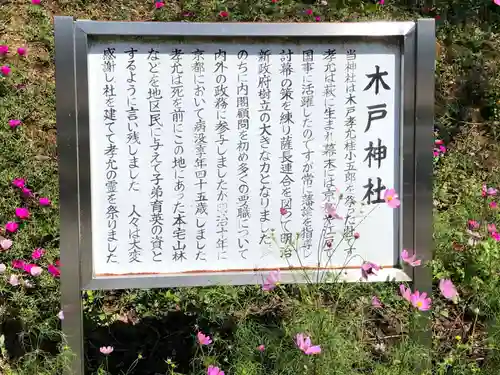 木戸神社
当神社は木戸孝允桂小五郎を祭った社で
孝允は萩に生まれ幕末には京や江戸
国事に活躍したのですが常に藩論を指導
討幕の策を練り薩長連合を図って明治
新政府樹立の大きな力となりました
のちに内閣顧問を初め多くの要職について
内外の政務に参与しましたが 十年に
京都において病没享年四十五歳でした
孝允は死を前にこの地にあった本宅山林
などを地区民に与えて子弟育英の資と
するように言い残しました 人々は大変
感謝し社を建てて孝允の霊を祭りました